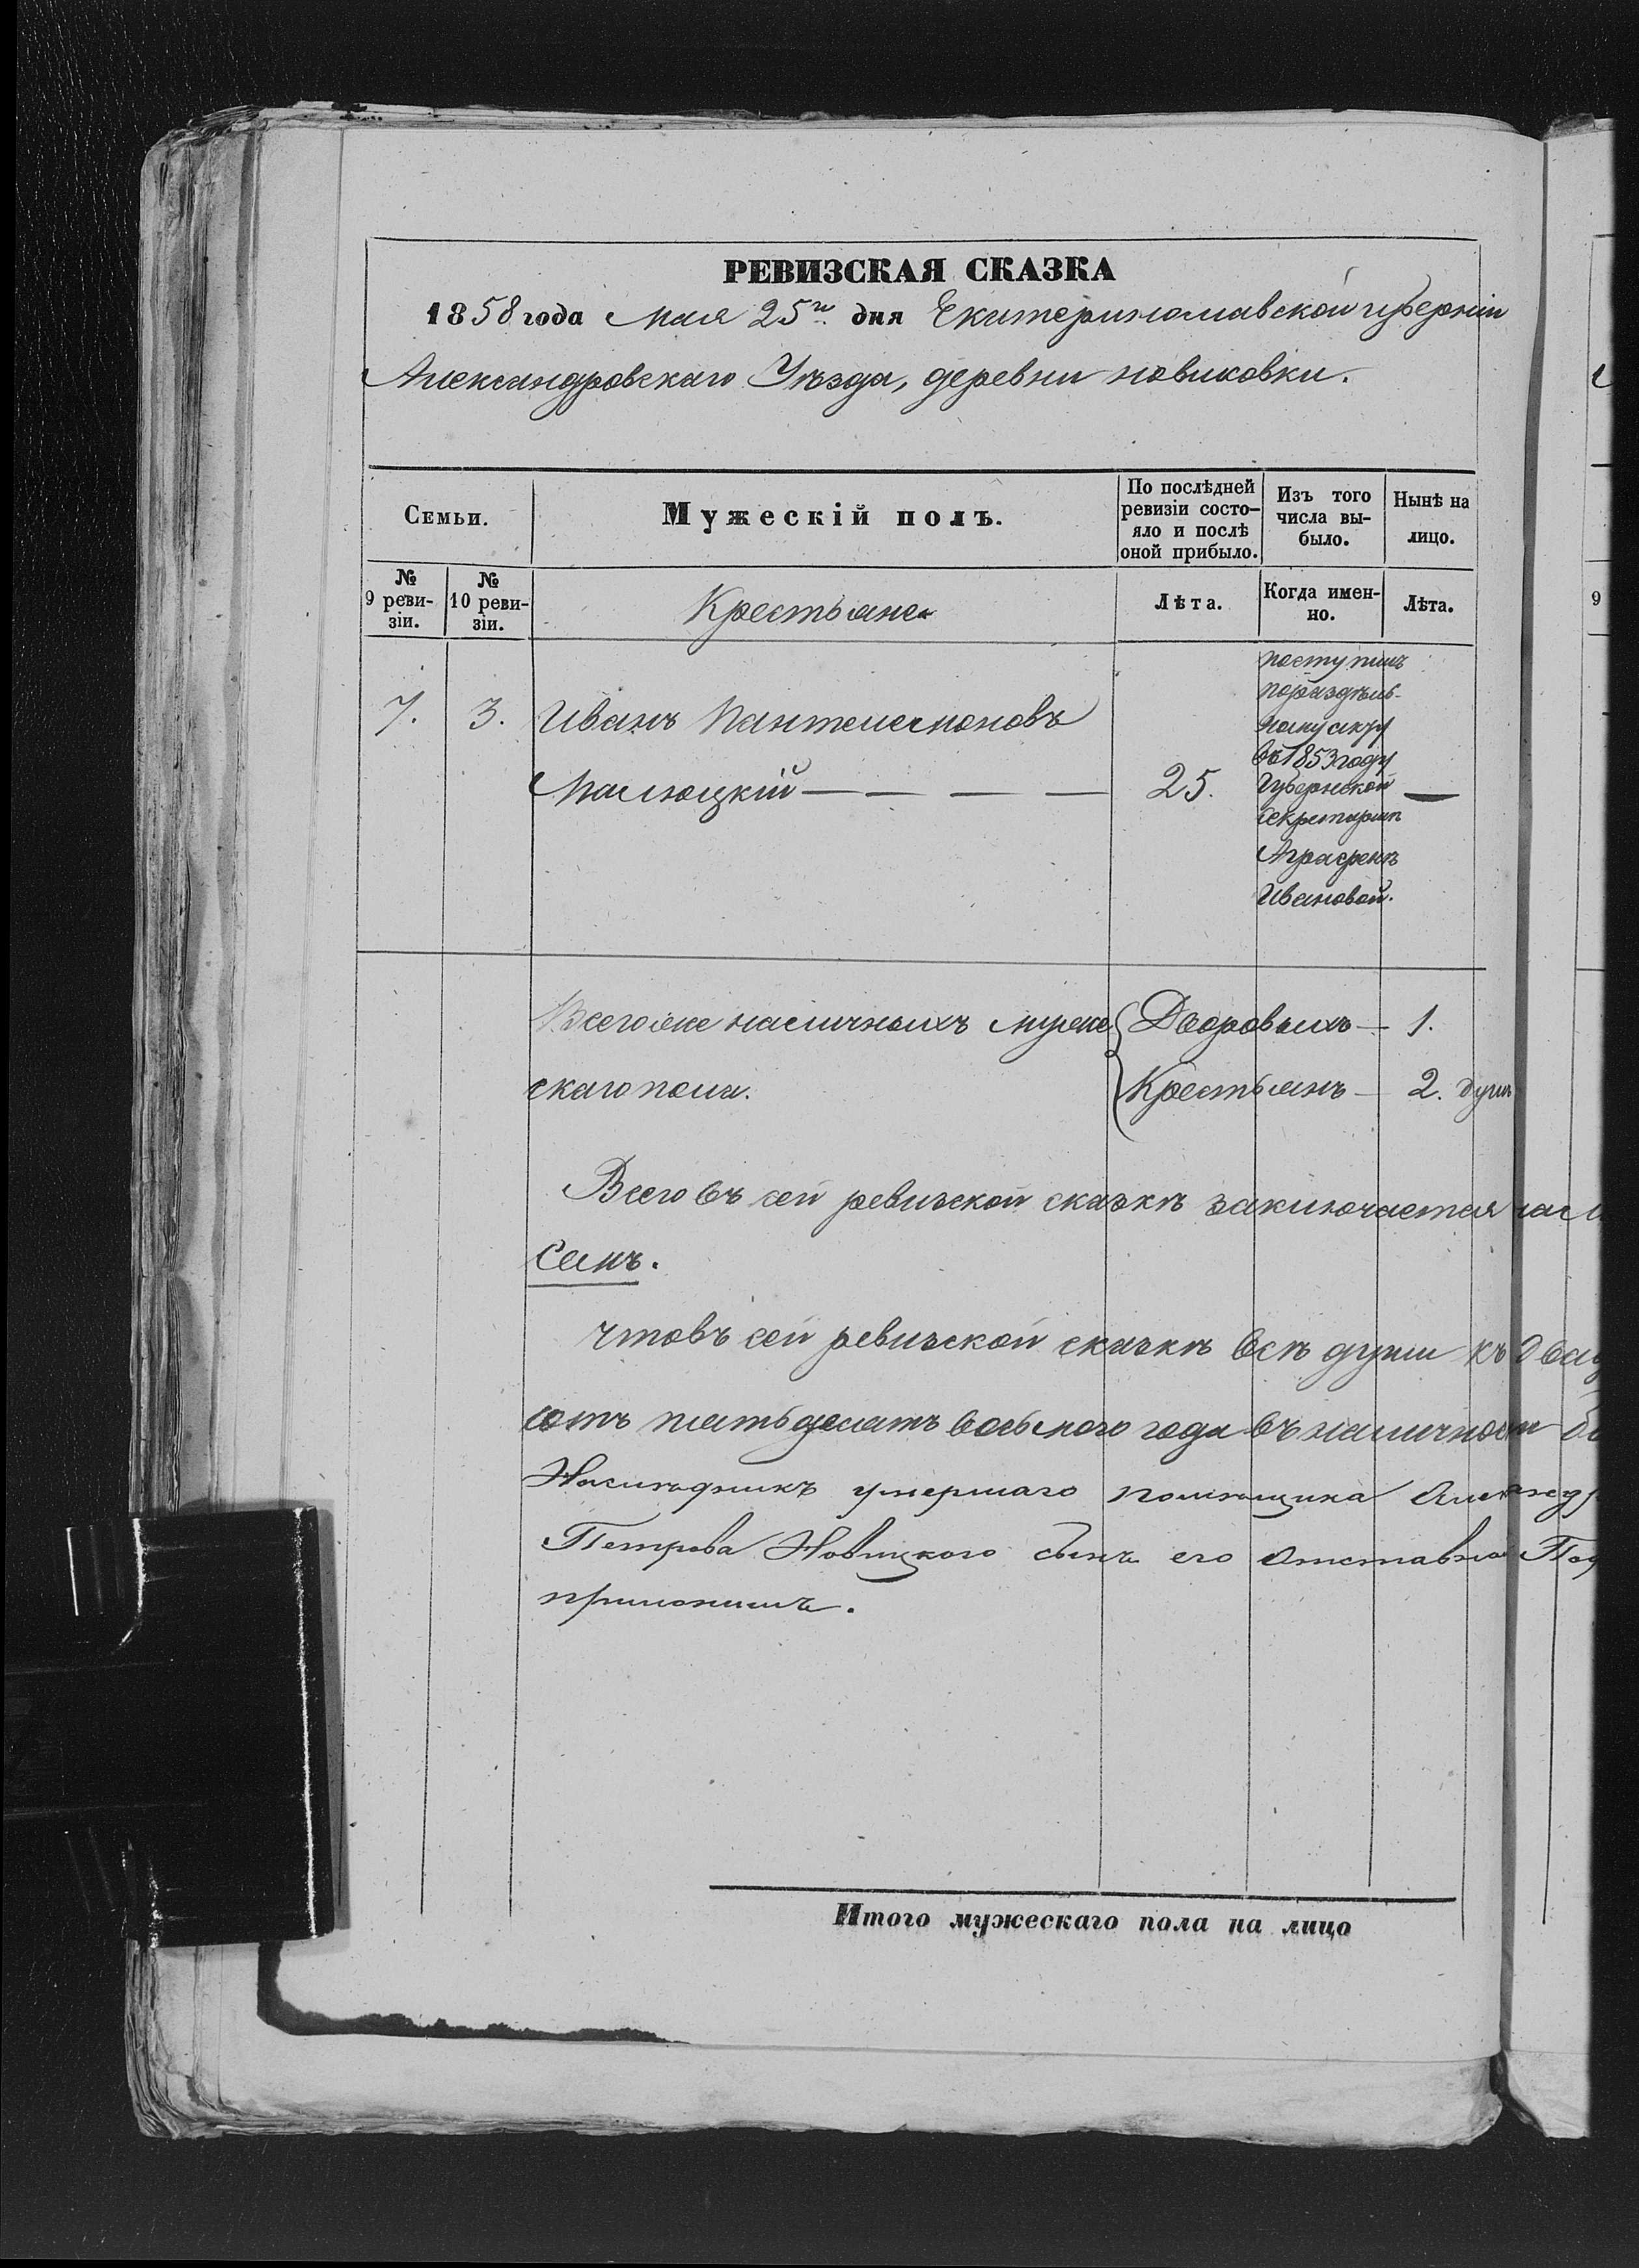 РЕВИЗСКАЯ СКАЗКА
1858 года Мая 25го дня Екатеринославской губерніи
Александровскаго Уѣзда, деревни новиковки.
Семьи.
Мужескій полъ.
По послѣдней ревизіи состо-
яло и послѣ
оной прибыло.
Изъ того
числа вы-
было.
Нынѣ на
лицо.
№
9 реви-
зіи.
№
10 реви-
зіи.
Крестьяне
Лѣта.
Когда имен-
но.
Лѣта.
9
7. 3. Иванъ Пантелеемоновъ
Малюцкій — — — — 25. —
поступилъ
пораздѣль-
ному акту
въ 1853 году
Губернской
секретаршѣ
Аграфенѣ
Ивановой.
Всегоже наличныхъ муже Дворовыхъ — 1.
скаго пола. Крестьянъ — 2. душ
Всего въ сей ревизской сказкѣ заключается
Семь.
Что въ сей ревизской сказкѣ всѣ души къ
сотъ пятьдесятъ восьмого года въ наличности
Наслѣдникъ умершаго помѣщика Александр
Петрова Новицкого сынъ его отставной Под
приложилъ.
Итого мужескаго пола на лицо